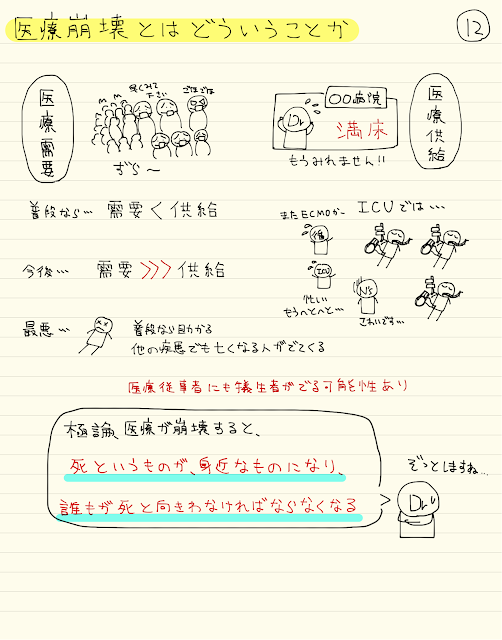 医療崩壊とはどういうことか
12
医療需要
早くみて
下さい
ごほごほ
ずら〜
〇〇病院
Dr
満床
もうみれません!!
医療供給
普段なら… 需要 < 供給
今後… 需要 >>> 供給
またECMOかー
ICUでは…
ICU
NS
忙しい
もうへとへと…
こわいです…
最悪…
普段なら助かる
他の疾患でも亡くなる人がでてくる
医療従事者にも犠牲者がでる可能性あり
極論、医療が崩壊すると、
死というものが、身近なものになり、
誰もが死と向きわなければならなくなる
ぞっとしますね…
Dr